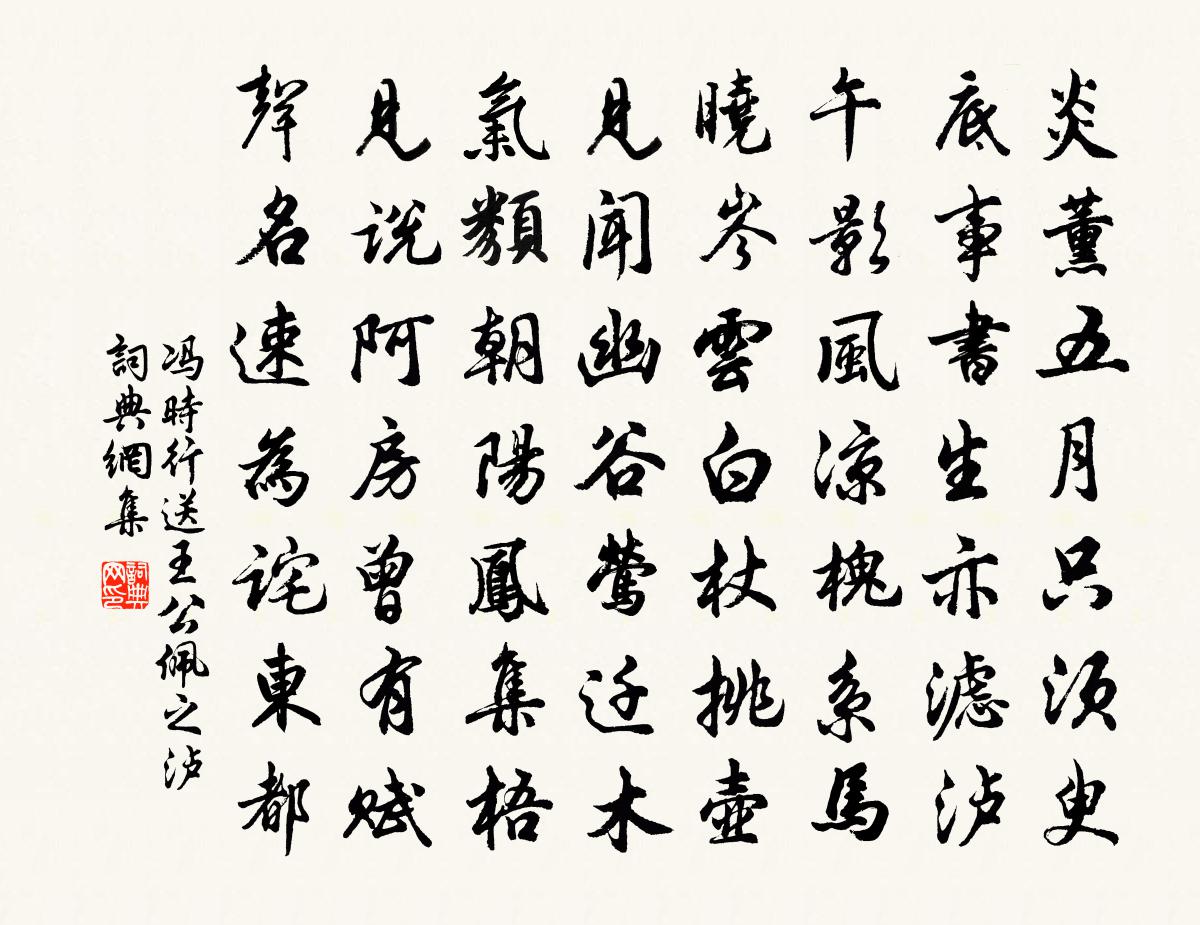 炎薰五月只須臾
底事書生亦濾泸
午影風涼槐系馬
曉岑雲白杖挑壺
見聞幽谷鶯迁木
氣類朝陽鳳集梧
見說阿房曾有賦
聲名速為詫東都
冯時行送王公佩之泸
詞典網集
詞典网印